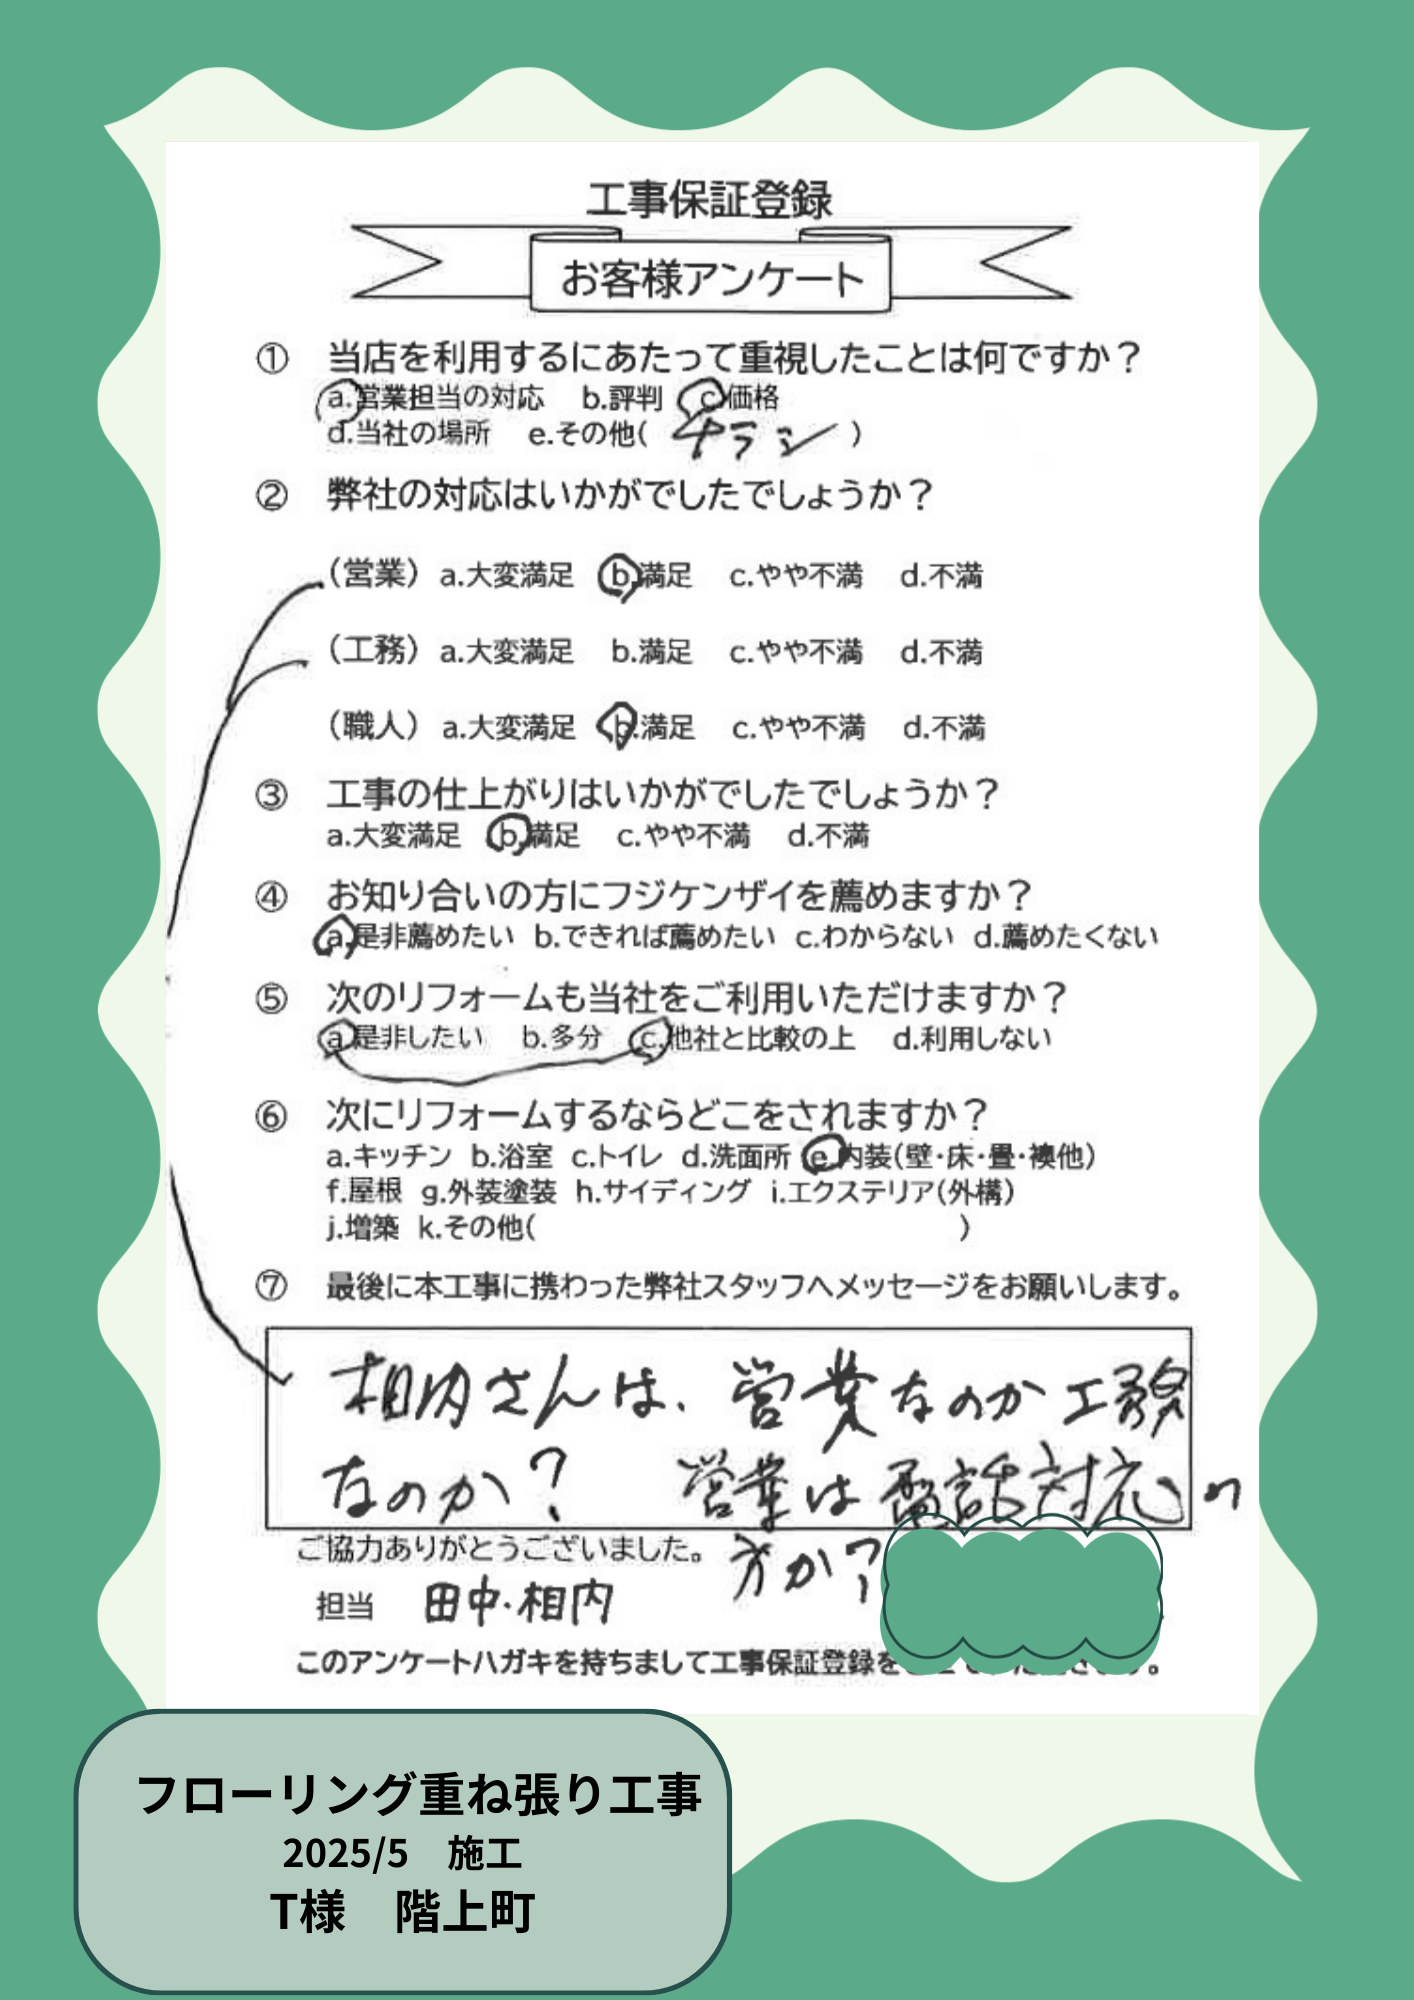 工事保証登録
お客様アンケート
① 当店を利用するにあたって重視したことは何ですか？
a.営業担当の対応 b.評判 c.価格
d.当社の場所 e.その他( チラシ )
② 弊社の対応はいかがでしたでしょうか？
（営業）a.大変満足 b.満足 c.やや不満 d.不満
（工務）a.大変満足 b.満足 c.やや不満 d.不満
（職人）a.大変満足 b.満足 c.やや不満 d.不満
③ 工事の仕上がりはいかがでしたでしょうか？
a.大変満足 b.満足 c.やや不満 d.不満
④ お知り合いの方にフジケンザイを薦めますか？
a.是非薦めたい b.できれば薦めたい c.わからない d.薦めたくない
⑤ 次のリフォームも当社をご利用いただけますか？
a.是非したい b.多分 c.他社と比較の上 d.利用しない
⑥ 次にリフォームするならどこをされますか？
a.キッチン b.浴室 c.トイレ d.洗面所 e.内装(壁・床・畳・襖他)
f.屋根 g.外装塗装 h.サイディング i.エクステリア(外構)
j.増築 k.その他( )
⑦ 最後に本工事に携わった弊社スタッフへメッセージをお願いします。
相内さんは、営業なのか工務
なのか？ 営業は電話対応の
方か？
ご協力ありがとうございました。
担当 田中・相内
このアンケートハガキを持ちまして工事保証登録を
フローリング重ね張り工事
2025/5 施工
T様 階上町